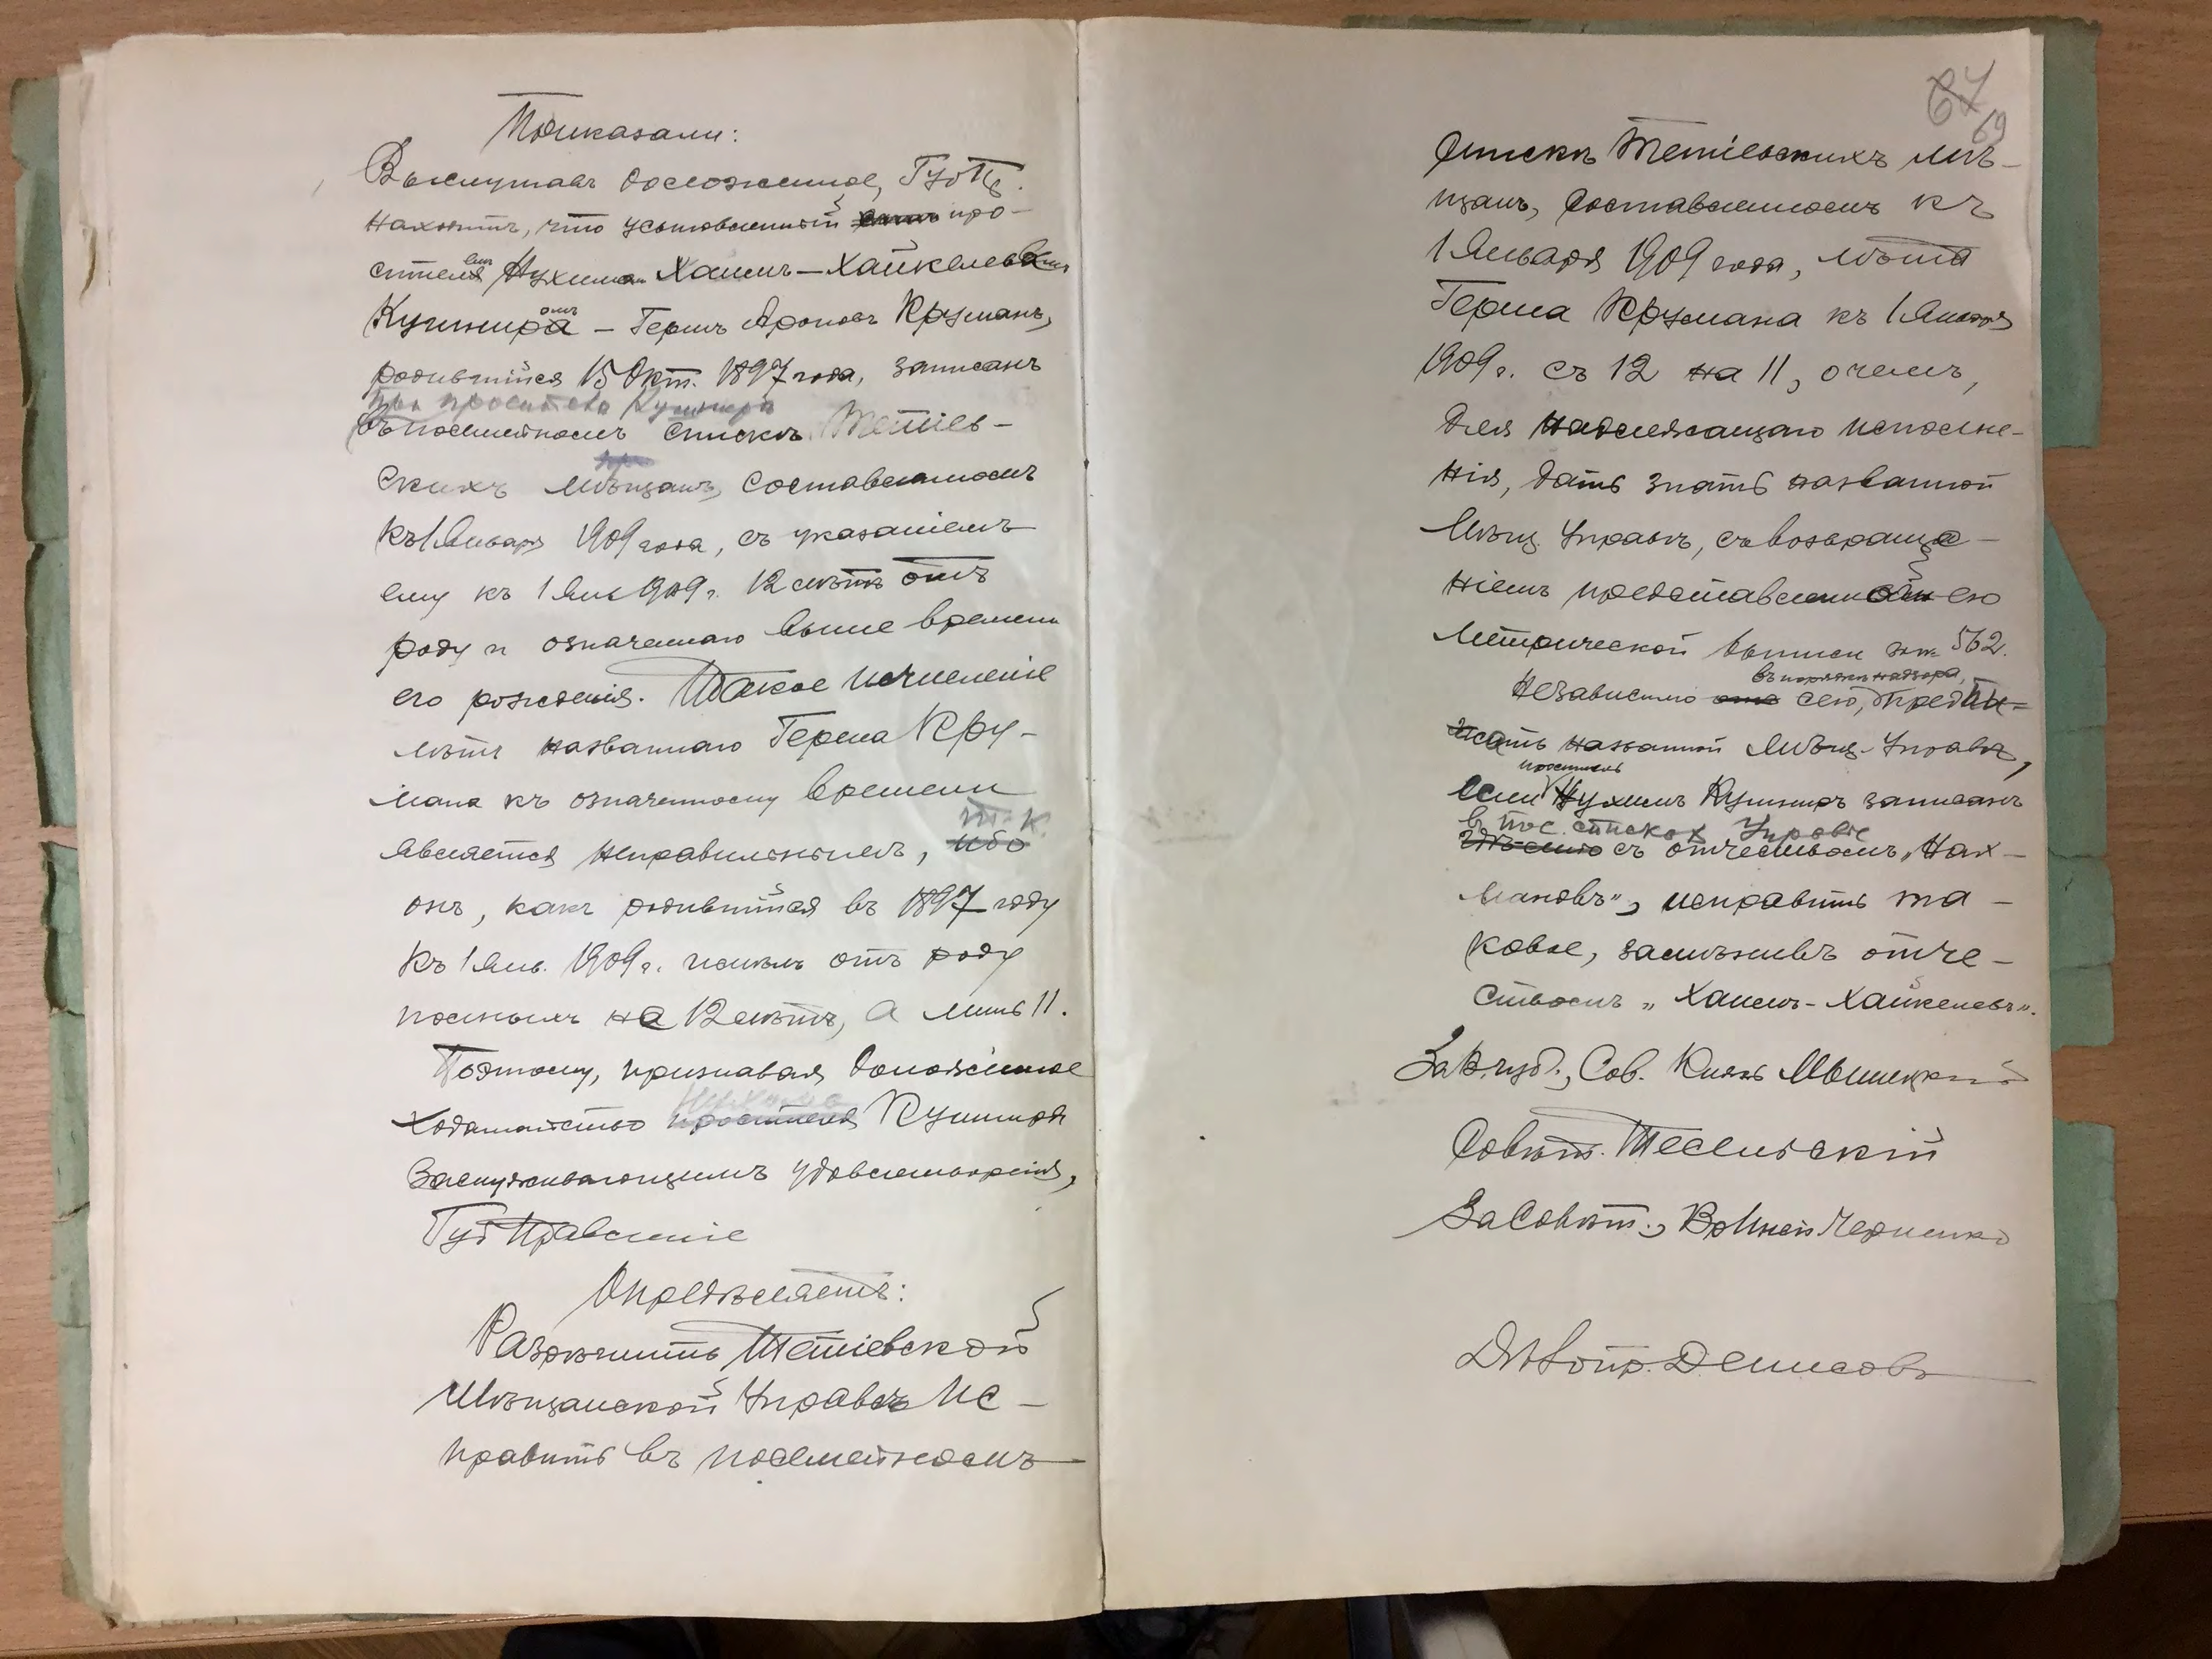 Приказали:
Выслушавъ доложенное, Губ. Пр.
находитъ, что усыновленный про-
сителемъ Нухимомъ Хаимъ-Хайкелевымъ
Кушниромъ – Гершъ Ароновъ Круманъ,
родившійся 15 Окт. 1897 года, записанъ
при просителѣ Кушнирѣ
въ посемейномъ спискѣ Тетіев-
скихъ мѣщанъ, составленномъ
къ 1 Января 1909 года, съ указаніемъ
ему къ 1 Янв 1909 г. 12 лѣтъ отъ
роду и означеннаго выше времени
его рожденія. Такое исчисленіе
лѣтъ названнаго Герша Кру-
мана къ означенному времени
является неправильнымъ, ибо т. к.
онъ, какъ родившійся въ 1897 году
къ 1 Янв. 1909 г. имѣлъ отъ роду
полныхъ не 12 лѣтъ, а лишь 11.
Поэтому, признавая доложенное
ходатайство просителя Нухима Кушнира
заслуживающимъ удовлетворенія,
Губ. Правленіе
Опредѣляетъ:
Разрѣшить Тетіевской
Мѣщанской Управѣ ис-
править въ посемейномъ
67
69
спискѣ Тетіевскихъ мѣ-
щанъ, составленномъ къ
1 Января 1909 года, лѣта
Герша Крумана къ 1 Января
1909 г. съ 12 на 11, о чемъ,
для надлежащаго исполне-
нія, дать знать названной
Мѣщ. Управѣ, съ возвраще-
ніемъ представленной ею
метрической выписи за № 562.
Независимо сего, въ порядкѣ надзора, предпи-
сать названной Мѣщ. Управѣ,
если проситель Нухимъ Кушниръ записанъ
в пос. списках Управы
съ отчествомъ „Нах-
мановъ", исправить та-
ковое, замѣнивъ отче-
ствомъ „Хаимъ-Хайкелевъ".
За В. губ., Сов. Князь Мышецкій
Совѣт.
За Совѣт., Вр. Инсп. Черненко
Дѣлопр. Денисовъ